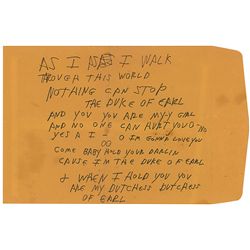 AS I I WALK
THOUGH THIS WORLD
NOTHING CAN STOP
THE DUKE OF EARL
AND YOU YOU ARE MY GIRL
AND NO ONE CAN HURT YOU NO
YES A I - O IM GONNA LOVE YOU
OO
COME BABY HOLD YOUR DARLIN
CAUSE I'M THE DUKE OF EARL
& WHEN I HOLD YOU YOU
ARE MY DUTCHESS DUTCHESS
OF EARL